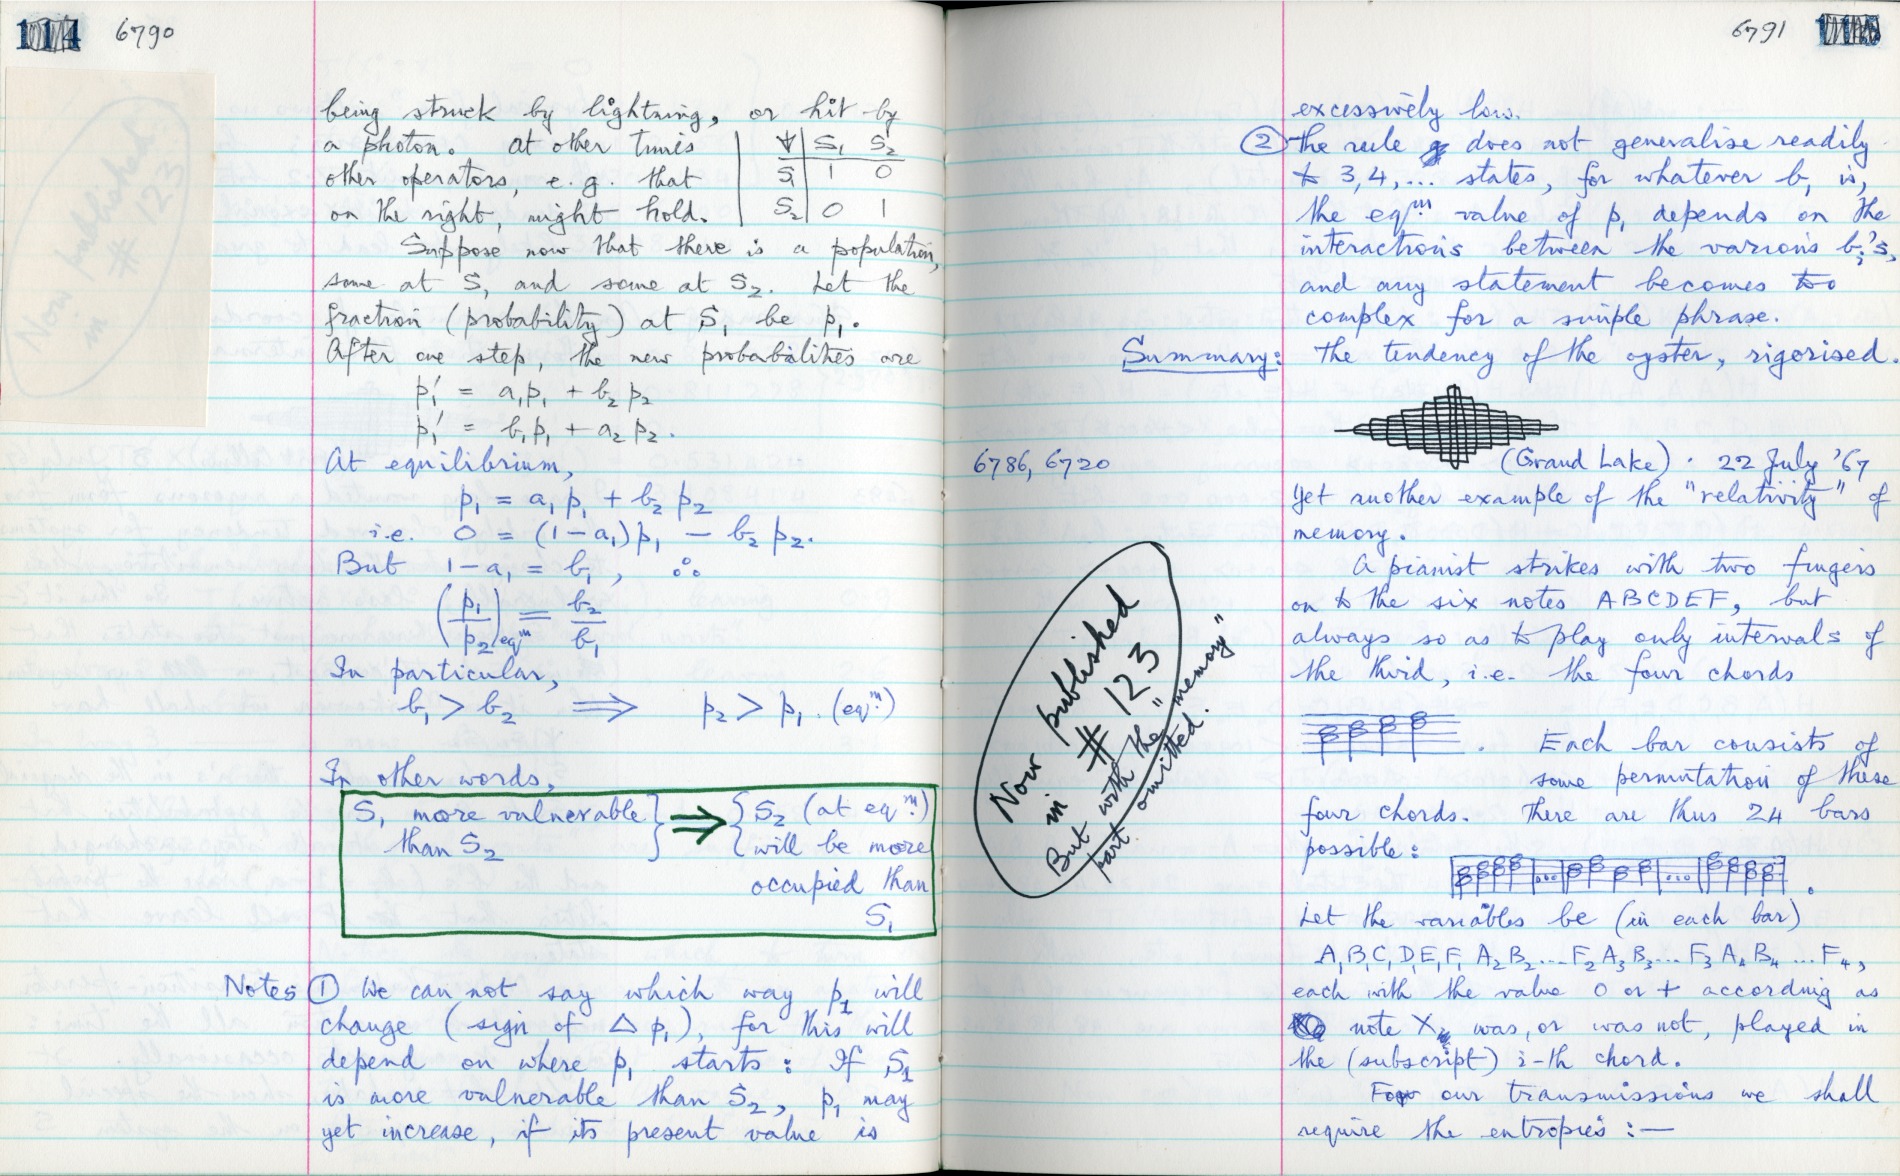 114 6790
being struck by lightning, or hit by
a photon. At other times
other operators, e.g. that
on the right, might hold.
↓ S₁ S₂
S₁ 1 0
S₂ 0 1
Suppose now that there is a population,
some at S₁ and some at S₂. Let the
fraction (probability) at S₁ be p₁.
After one step, the new probabilities are
p₁' = a₁p₁ + b₂p₂
p₁' = b₁p₁ + a₂p₂.
At equilibrium,
p₁ = a₁p₁ + b₂p₂
i.e. 0 = (1-a₁)p₁ - b₂p₂.
But 1-a₁ = b₁, ∴
(p₁/p₂)eqᵐ = b₂/b₁
In particular,
b₁ > b₂ ⟹ p₂ > p₁. (eqᵐ)
In other words,
S₁ more vulnerable than S₂ } ⇒ { S₂ (at eqᵐ) will be more occupied than S₁
Notes ① We can not say which way p₁ will
change (sign of Δp₁), for this will
depend on where p₁ starts: If S₁
is more vulnerable than S₂, p₁ may
yet increase, if its present value is
Now published
in # 123
6791
excessively low.
② The rule does not generalise readily
to 3,4,... states, for whatever b₁ is,
the eqᵐ value of p₁ depends on the
interactions between the various bᵢ's,
and any statement becomes too
complex for a simple phrase.
Summary: The tendency of the oyster, rigorised.
6786, 6720
(Grand Lake). 22 July '67
Yet another example of the "relativity" of
memory.
A pianist strikes with two fingers
on to the six notes ABCDEF, but
always so as to play only intervals of
the third, i.e. the four chords
. Each bar consists of
some permutation of these
four chords. There are thus 24 bars
possible:
Let the variables be (in each bar)
A₁B₁C₁D₁E₁F₁ A₂B₂...F₂ A₃B₃...F₃ A₄B₄...F₄,
each with the value 0 or + according as
note X was, or was not, played in
the (subscript) i-th chord.
For our transmissions we shall
require the entropies :—
Now published
in # 123
But with the "memory"
part omitted.